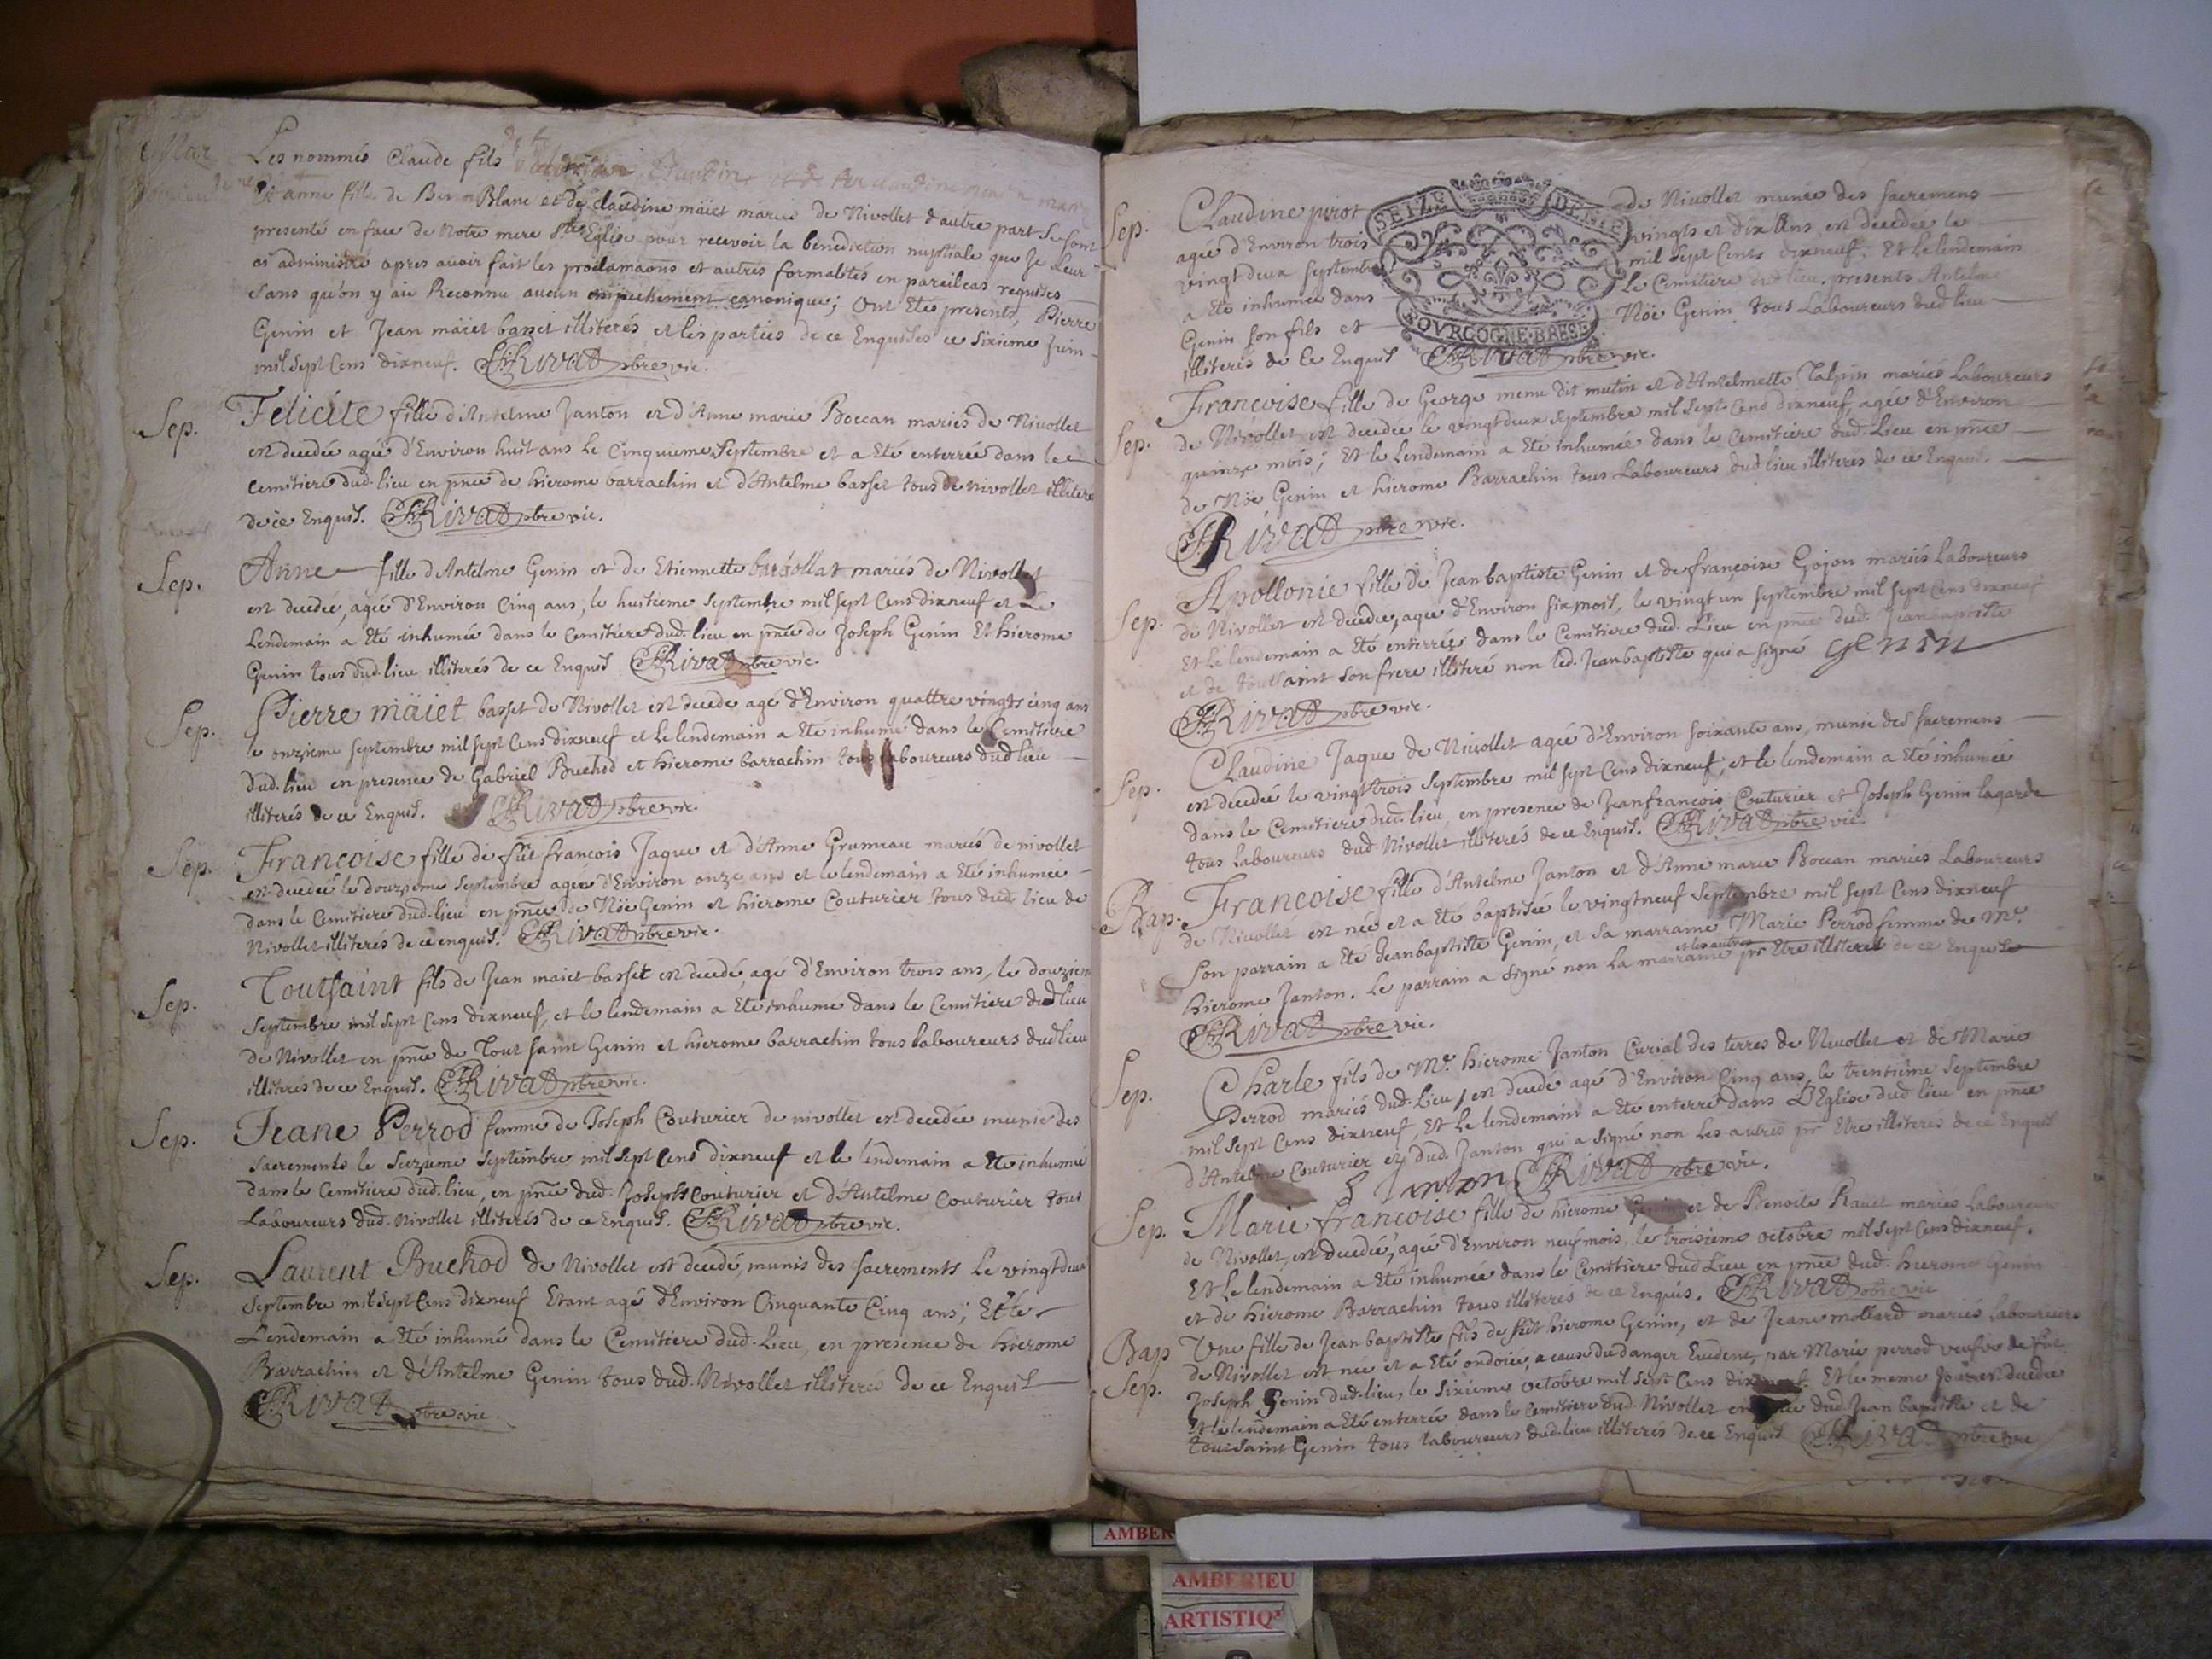 Mar
Les nommés Claude fils
Et anne fille de Blanc et de claudine mäiet mariés de Nivollet d'autre part Se sont
presenté en face de Notre mere Ste Eglise pour recevoir la benediction nuptiale que Je Leur
ai administré apres auoir fait les proclamaons et autres formalites en pareil cas requises
Sans qu'on y aie Reconnu aucun empechement canonique; Ont Etés presents, Pierre
Genin et Jean mäiet basset illiterés et les parties de ce Enquises ce Sixieme Juin
mil Sept Cens dixneuf. Rivat pbre vic.
Sep. Felicite fille d'Antelme Janton et d'Anne marie Boccan mariés de Nivollet
est decedée agée d'Environ huit ans Le Cinquieme Septembre et a Eté enterrée dans le
Cemitiere dud. lieu en pnce de hierome barrachin et d'Antelme basset tous de nivollet illiteré
de ce Enquis. Rivat pbre vic.
Sep. Anne fille d'Antelme Genin et de Etiennette mariés de Nivollet
est decedée, agée d'Environ Cinq ans, le huitieme Septembre mil sept Cens dixneuf et Le
Lendemain a Eté inhumée dans le Cemitiere dud. lieu en pnce de Joseph Genin Et hierome
Genin tous dud. lieu illiterés de ce Enquis Rivat pbre vic.
Sep. Pierre mäiet basset de Nivollet est decedé agé d'Environ quattre vingts cinq ans
le onzieme septembre mil sept Cens dixneuf et Le lendemain a Eté inhumé dans le Cemitiere
dud. lieu en presence de Gabriel Buchod et hierome barrachin tous laboureurs dud lieu
illiterés de ce Enquis. Rivat pbre vic.
Sep. Francoise fille de fût francois Jaque et d'Anne Grumeau mariés de nivollet
est decedée le douzieme Septembre agée d'Environ onze ans et le lendemain a Eté inhumée
dans le Cemitiere dud. lieu en pnce de Nöe Genin et hierome Couturier tous dud. lieu de
Nivollet illiterés de ce enquis. Rivat pbre vic.
Sep. Toussaint fils de Jean maiet basset est decedé, agé d'Environ trois ans, le douziem
Septembre mil sept Cens dixneuf, et le lendemain a Eté inhumé dans le Cemitiere dud lieu
de Nivollet en pnce de Tout saint Genin et hierome barrachin tous laboureurs dud lieu
illiterés de ce Enquis. Rivat pbre vic.
Sep. Jeane Perrod femme de Joseph Couturier de nivollet est decedée munie des
sacrements le Seizieme Septembre mil sept Cens dixneuf et le lendemain a Eté inhumée
dans le Cemitiere dud. lieu, en pnce dud. Joseph Couturier et d'Antelme Couturier tous
Laboureurs dud. Nivollet illiterés de ce Enquis. Rivat pbre vic.
Sep. Laurent Buchod de Nivollet est decedé, munis des sacrements Le vingt deux
Septembre mil Sept Cens dixneuf Etant agé d'Environ Cinquante Cinq ans; Et le
Lendemain a Eté inhumé dans le Cemitiere dud. Lieu, en presence de hierome
Barrachin et d'Antelme Genin tous dud. Nivollet illiterés de ce Enquis
Rivat pbre vic.
Sep. Claudine pirot de Nivollet munie des sacremens
agée d'Environ trois vingts et dix Ans est decedée le
vingt deux Septembre mil Sept Cents dixneuf; Et Le lendemain
a Eté inhumée dans Le Cemitiere dud lieu, presents Antelme
Genin son fils et Nöe Genin tous Laboureurs dud lieu
illiterés de ce Enquis Rivat pbre vic.
SEIZE DENIE
BOVRGOGNE·BRESE
Sep. Francoise fille de George menu dit mutin et d'Antelmette Talpin mariés Laboureurs
de Nivollet est decedée le vingt deux Septembre mil sept Cens dixneuf, agée d'Environ
quinze mois; Et le Lendemain a Eté inhumée dans le Cemitiere dud. Lieu en pnce
de Nöe Genin et hierome Barrachin tous Laboureurs dud lieu illiterés de ce Enquis.
Rivat pbre vic.
Sep. Apollonie fille de Jean baptiste Genin et de françoise Gojon mariés Laboureurs
de Nivollet est decedée, agée d'Environ six mois, le vingt un septembre mil sept Cens dixneuf
Et Le lendemain a Eté enterrée dans le Cemitiere dud. Lieu en pnce dud. Jean baptiste
et de toussaint son frere illiteré non led. Jean baptiste qui a signé Genin
Rivat pbre vic.
Sep. Claudine Jaque de Nivollet agée d'Environ soixante ans, munie des sacremens
est decedée le vingt trois Septembre mil sept Cens dixneuf, et le lendemain a Eté inhumée
dans le Cemitiere dud. lieu, en presence de Jean francois Couturier et Joseph Genin lagarde
tous Laboureurs dud Nivollet illiterés de ce Enquis. Rivat pbre vic.
Bap. Francoise fille d'Antelme Janton et d'Anne marie Boccan mariés Laboureurs
de Nivollet est née et a Eté baptisée le vingt neuf Septembre mil sept Cens dixneuf
son parrain a Eté Jean baptiste Genin, et sa marraine Marie Perrod femme de Me.
hierome Janton. Le parrain a signé non la marraine et les autres pr Etre illiterés de ce Enquis
Rivat pbre vic.
Sep. Charle fils de Me. hierome Janton Curial des terres de Nivollet et de Marie
Perrod mariés dud. Lieu, est decedé agé d'Environ Cinq ans, le trentieme Septembre
mil sept Cens dixneuf, Et Le lendemain a Eté enterré dans L'Eglise dud lieu en pnce
d'Antelme Couturier et dud. Janton qui a signé non les autres pr Etre illiterés de ce Enquis
Janton Rivat pbre vic.
Sep. Marie francoise fille de hierome Genin et de Benoite mariés Laboureurs
de Nivollet, est decedée, agée d'Environ neuf mois, le troisieme octobre mil sept Cens dixneuf.
Et Le lendemain a Eté inhumée dans le Cemitiere dud Lieu en pnce dud. hierome Genin
et de hierome Barrachin tous illiterés de ce Enquis. Rivat pbre vic
Bap Une fille de Jean baptiste fils de fût hierome Genin, et de Jeane mollard mariés laboureurs
Sep. de Nivollet est née et a Eté ondoiée, a cause du danger Evident, par Marie perrod veufve de fut
Joseph Genin dud. lieu, le Sixieme octobre mil sept Cens dixneuf. Et le meme Jour est decedée
Et le lendemain a Eté enterrée dans le Cemitiere dud. Nivollet en pnce dud. Jean baptiste et de
toussaint Genin tous laboureurs dud. lieu illiterés de ce Enquis Rivat pbre vic
AMBER
AMBERIEU
ARTISTIQ